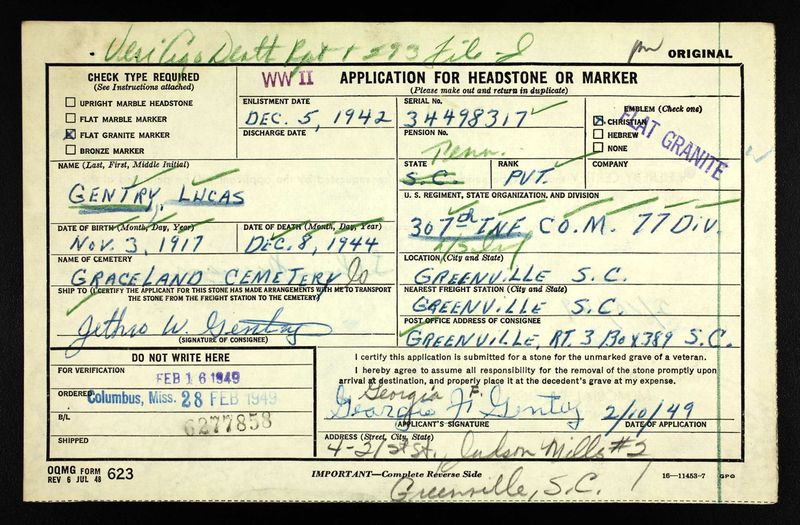 Death Rpt + 293 File
ORIGINAL
CHECK TYPE REQUIRED
(See Instructions attached)
UPRIGHT MARBLE HEADSTONE
FLAT MARBLE MARKER
FLAT GRANITE MARKER
BRONZE MARKER
WW II
APPLICATION FOR HEADSTONE OR MARKER
(Please make out and return in duplicate)
ENLISTMENT DATE
DEC. 5, 1942
DISCHARGE DATE
SERIAL No.
34498317
PENSION No.
EMBLEM (Check one)
CHRISTIAN
HEBREW
NONE
FLAT GRANITE
NAME (Last, First, Middle Initial)
GENTRY, LUCAS
STATE
S.C.
Tenn.
RANK
PVT.
COMPANY
U. S. REGIMENT, STATE ORGANIZATION, AND DIVISION
307th INF CO. M. 77 DIV.
DATE OF BIRTH (Month, Day, Year)
NOV. 3, 1917
DATE OF DEATH (Month, Day, Year)
DEC. 8, 1944
NAME OF CEMETERY
GRACELAND CEMETERY Co
LOCATION (City and State)
GREENVILLE S.C.
SHIP TO (I CERTIFY THE APPLICANT FOR THIS STONE HAS MADE ARRANGEMENTS WITH ME TO TRANSPORT
THE STONE FROM THE FREIGHT STATION TO THE CEMETERY)
Jethro W. Gentry
(SIGNATURE OF CONSIGNEE)
NEAREST FREIGHT STATION (City and State)
GREENVILLE S.C.
POST OFFICE ADDRESS OF CONSIGNEE
GREENVILLE, RT. 3 Box 389 S.C.
DO NOT WRITE HERE
FOR VERIFICATION
FEB 16 1949
ORDERED
Columbus, Miss. 28 FEB 1949
B/L
6277858
SHIPPED
I certify this application is submitted for a stone for the unmarked grave of a veteran.
I hereby agree to assume all responsibility for the removal of the stone promptly upon
arrival at destination, and properly place it at the decedent's grave at my expense.
Georgia F.
Georgia F. Gentry 2/10/49
(APPLICANT'S SIGNATURE)
DATE OF APPLICATION
ADDRESS (Street, City, State)
4-21st St., Judson Mills #2
Greenville, S.C.
OQMG FORM
REV 6 JUL 48
623
IMPORTANT—Complete Reverse Side
16—11453-7 GPO